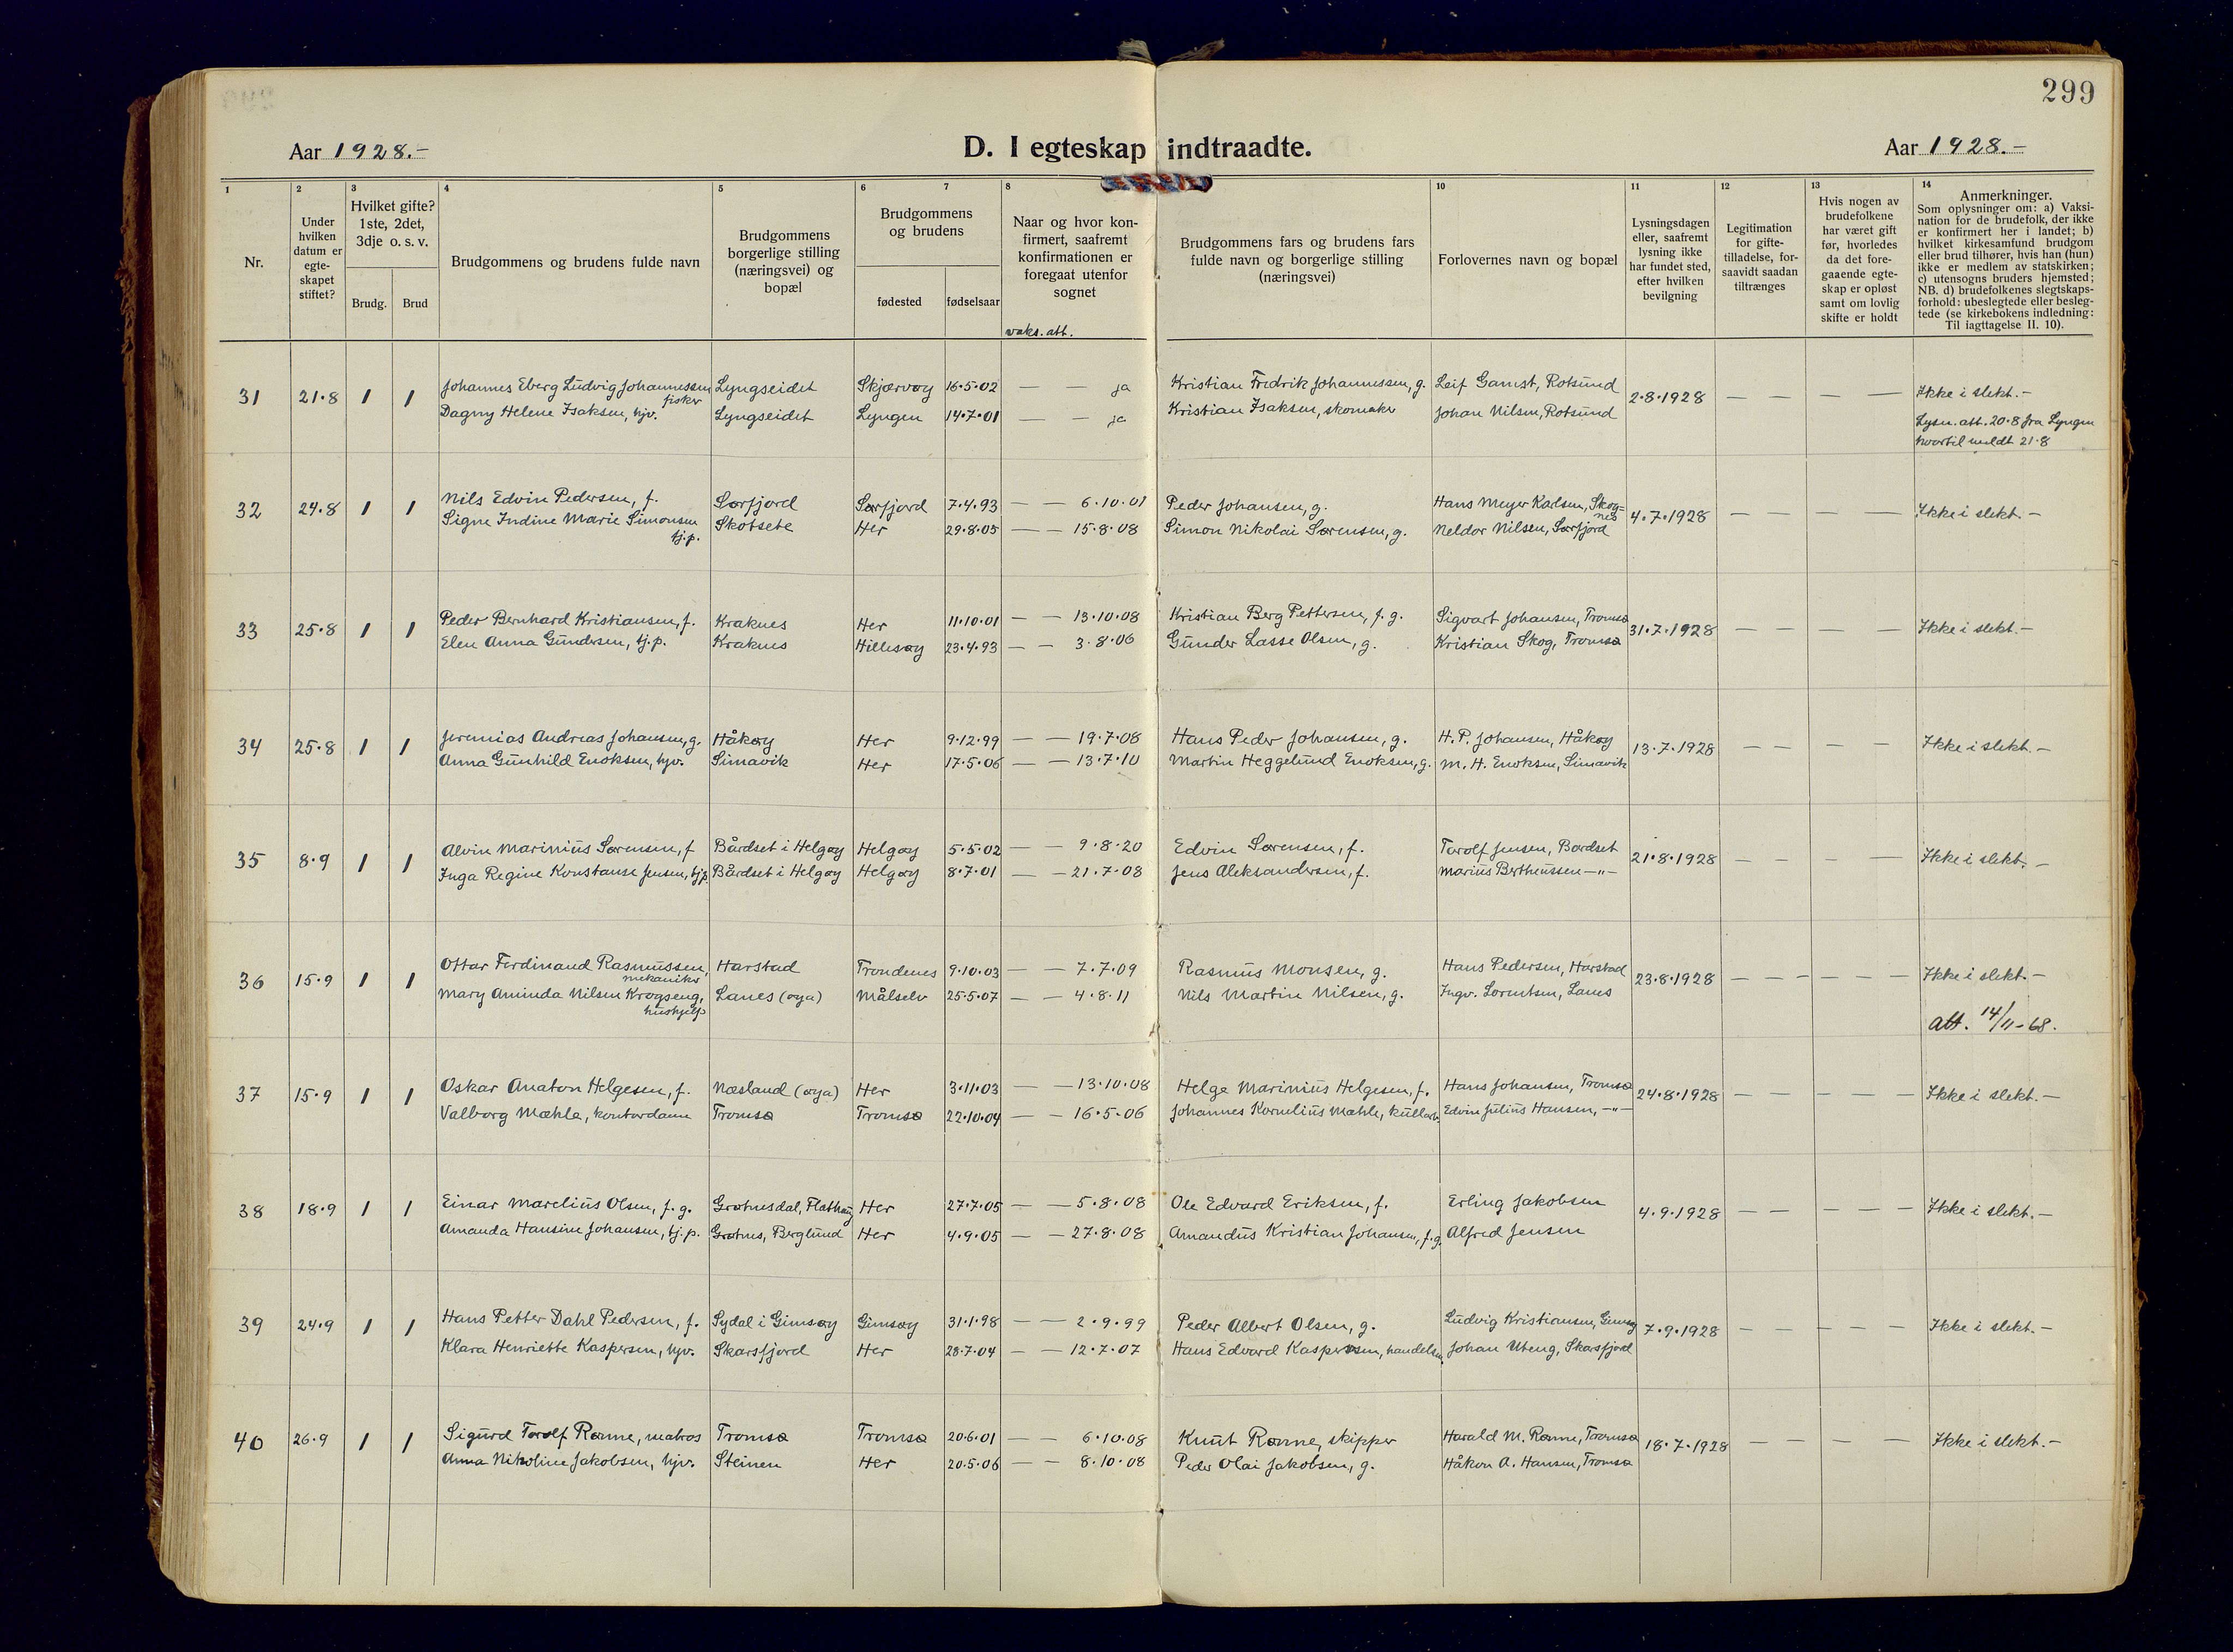 299
Aar 1928.-
D. I egteskap indtraadte.
Aar 1928.-
1
Nr.
2
Under hvilken datum er egte-skapet stiftet?
3
Hvilket gifte? 1ste, 2det, 3dje o. s. v.
Brudg.
Brud
4
Brudgommens og brudens fulde navn
5
Brudgommens borgerlige stilling (næringsvei) og bopæl
6
7
Brudgommens og brudens
fødested
fødselsaar
8
Naar og hvor kon-firmert, saafremt konfirmationen er foregaat utenfor sognet
vaks. att.
Brudgommens fars og brudens fars fulde navn og borgerlige stilling (næringsvei)
10
Forlovernes navn og bopæl
11
Lysningsdagen eller, saafremt lysning ikke har fundet sted, efter hvilken bevilgning
12
Legitimation for gifte-tilladelse, for-saavidt saadan tiltrænges
13
Hvis nogen av brudefolkene har været gift før, hvorledes da det fore-gaaende egte-skap er opløst samt om lovlig skifte er holdt
14
Anmerkninger.
Som oplysninger om: a) Vaksi-nation for de brudefolk, der ikke er konfirmert her i landet; b) hvilket kirkesamfund brudgom eller brud tilhører, hvis han (hun) ikke er medlem av statskirken; c) utensogns bruders hjemsted; NB. d) brudefolkenes slegtskaps-forhold: ubeslegtede eller besleg-tede (se kirkebokens indledning: Til iagttagelse II. 10).
31 21.8 1 1 Johannes Eberg Ludvig Johannessen fisker Lyngseidet Skjærvøy 16.5.02 — — ja Kristian Fredrik Johannessen, g. Leif Gamst, Rotsund 2.8.1928 — — — — Ikke i slekt.-
Dagny Helene Isaksen, hjv. Lyngseidet Lyngen 14.7.01 — — ja Kristian Isaksen, skomaker Johan Nilsen, Rotsund
Lysn. att. 20.8 fra Lyngen
hvortil meldt 21.8
32 24.8 1 1 Nils Edvin Pedersen, f. Sørfjord Sørfjord 7.4.93 — — 6.10.01 Peder Johansen, g. Hans Meyer Karlsen, Skog=nes 4.7.1928 — — — — Ikke i slekt.-
Signe Indine Marie Simonsen tj.p. Skotsete Her 29.8.05 — — 15.8.08 Simon Nikolai Sørensen, g. Neldor Nilsen, Sørfjord
33 25.8 1 1 Peder Bernhard Kristiansen, f. Kraknes Her 11.10.01 — — 13.10.08 Kristian Berg Pettersen, f. g. Sigvart Johansen, Tromsø 31.7.1928 — — — — Ikke i slekt.-
Elen Anna Gundersen, tj.p. Kraknes Hillesøy 23.4.93 — — 3.8.06 Gunder Lasse Olsen, g. Kristian Skog, Tromsø
34 25.8 1 1 Jeremias Andreas Johansen, g. Håkøy Her 9.12.99 — — 19.7.08 Hans Peder Johansen, g. H. P. Johansen, Håkøy 13.7.1928 — — — — Ikke i slekt.-
Anna Gunhild Enoksen, hjv. Simavik Her 17.5.06 — — 13.7.10 Martin Heggelund Enoksen, g. M. H. Enoksen, Simavik
35 8.9 1 1 Alvin Marinius Sørensen, f Bårdset i Helgøy Helgøy 5.5.02 — — 9.8.20 Edvin Sørensen, f. Torolf Jensen, Bardset 21.8.1928 — — — — Ikke i slekt.-
Inga Regine Konstanse Jensen, tj.p. Bårdset i Helgøy Helgøy 8.7.01 — — 21.7.08 Jens Aleksandersen, f. Marius Bertheussen —"—
36 15.9 1 1 Ottar Ferdinand Rasmussen, mekaniker Harstad Trondenes 9.10.03 — — 7.7.09 Rasmus Monsen, g. Hans Pedersen, Harstad 23.8.1928 — — — — — — Ikke i slekt.-
Mary Aminda Nilsen Krogseng, hushjelp Lanes (øya) Målselv 25.5.07 — — 4.8.11 Nils Martin Nilsen, g. Ingv. Lorentsen, Lanes
Att. 14/11-68.
37 15.9 1 1 Oskar Anaton Helgesen, f. Næsland (øya) Her 3.11.03 — — 13.10.08 Helge Marinius Helgesen, f. Hans Johansen, Tromsø 24.8.1928 — — — — — Ikke i slekt.-
Valborg Mæhle, kontordame Tromsø Tromsø 22.10.04 — — 16.5.06 Johannes Kornelius Mæhle, kullarb. Edvin Julius Hansen, —"—
38 18.9 1 1 Einar Marelius Olsen, f. g. Grøtnesdal, Flathaug Her 27.7.05 — — 5.8.08 Ole Edvard Eriksen, f. Erling Jakobsen 4.9.1928 — — — — — Ikke i slekt.-
Amanda Hansine Johansen, tj.p. Grøtnes, Berglund Her 4.9.05 — — 27.8.08 Amandus Kristian Johansen, f.g. Alfred Jensen
39 24.9 1 1 Hans Petter Dahl Pedersen, f. Sydal i Gimsøy Gimsøy 31.1.98 — — 2.9.99 Peder Albert Olsen, g. Ludvig Kristiansen, Gimsøy 7.9.1928 — — — — — Ikke i slekt.-
Klara Henriette Kaspersen, hjv. Skarsfjord Her 28.7.04 — — 12.7.07 Hans Edvard Kaspersen, handelsm. Johan Uteng, Skarsfjord
40 26.9 1 1 Sigurd Torolf Rønne, matros Tromsø Tromsø 20.6.01 — — 6.10.08 Knut Rønne, skipper Harald M. Rønne, Tromsø 18.7.1928 — — — — Ikke i slekt.-
Anna Nikoline Jakobsen, hjv. Steinen Her 20.5.06 — — 8.10.08 Peder Olai Jakobsen, g. Håkon A. Hansen, Tromsø